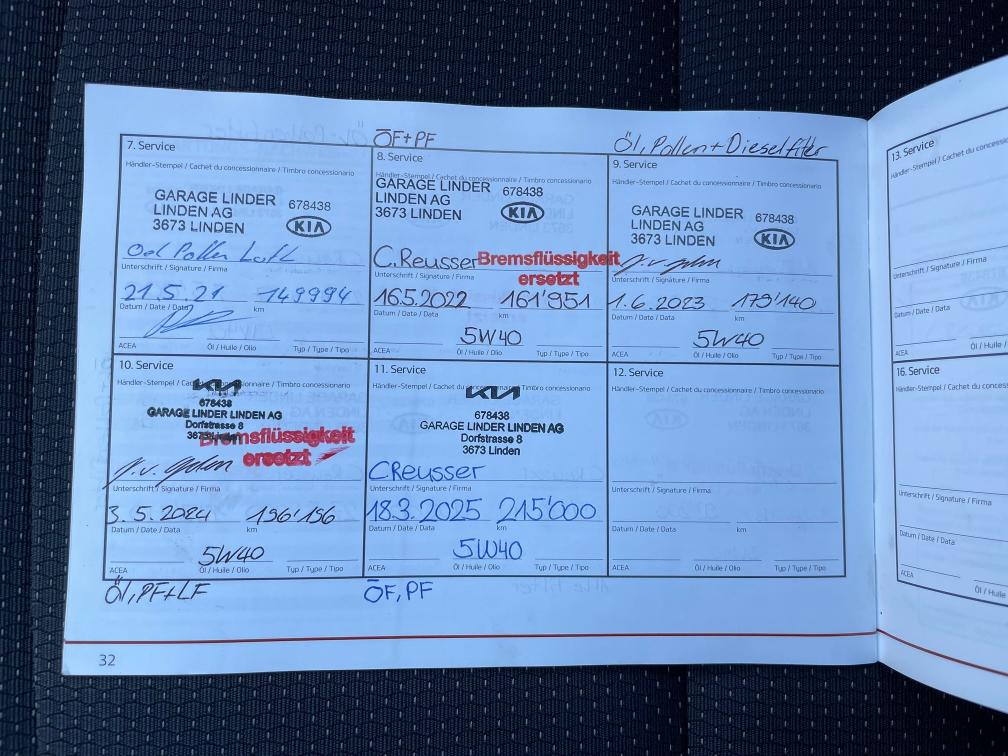 ÖF+PF
Öl, Pollen + Dieselfilter
7. Service
Händler-Stempel / Cachet du concessionnaire / Timbro concessionario
GARAGE LINDER
LINDEN AG
3673 LINDEN
678438
KIA
Oel Pollen Luft
Unterschrift / Signature / Firma
21.5.21 149994
Datum / Date / Data km
ACEA Öl / Huile / Olio Typ / Type / Tipo
8. Service
Händler-Stempel / Cachet du concessionnaire / Timbro concessionario
GARAGE LINDER
LINDEN AG
3673 LINDEN
678438
KIA
C.Reusser
Bremsflüssigkeit
ersetzt
Unterschrift / Signature / Firma
16.5.2022 161'951
Datum / Date / Data km
5W40
ACEA Öl / Huile / Olio Typ / Type / Tipo
9. Service
Händler-Stempel / Cachet du concessionnaire / Timbro concessionario
GARAGE LINDER
LINDEN AG
3673 LINDEN
678438
KIA
Unterschrift / Signature / Firma
1.6.2023 179'140
Datum / Date / Data km
5W40
ACEA Öl / Huile / Olio Typ / Type / Tipo
10. Service
Händler-Stempel / Cachet du concessionnaire / Timbro concessionario
KIA
678438
GARAGE LINDER LINDEN AG
Dorfstrasse 8
3673 Linden
Bremsflüssigkeit
ersetzt
Unterschrift / Signature / Firma
3.5.2024 196'196
Datum / Date / Data km
5W40
ACEA Öl / Huile / Olio Typ / Type / Tipo
Öl, PF+LF
11. Service
Händler-Stempel / Cachet du concessionnaire / Timbro concessionario
KIA
678438
GARAGE LINDER LINDEN AG
Dorfstrasse 8
3673 Linden
CReusser
Unterschrift / Signature / Firma
18.3.2025 215'000
Datum / Date / Data km
5W40
ACEA Öl / Huile / Olio Typ / Type / Tipo
ÖF, PF
12. Service
Händler-Stempel / Cachet du concessionnaire / Timbro concessionario
Unterschrift / Signature / Firma
Datum / Date / Data km
ACEA Öl / Huile / Olio Typ / Type / Tipo
32
13. Service
Händler-Stempel / Cachet du
Unterschrift / Signature / Firma
Datum / Date / Data
ACEA Öl / Huile
16. Service
Händler-Stempel / Cachet du
Unterschrift / Signature / Firma
Datum / Date / Data
ACEA Öl / Huile